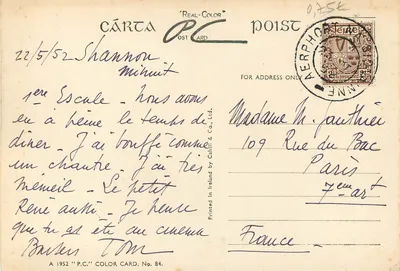 "REAL-COLOR"
CÁRTA P.C. POIST
POST CARD
0,75€
FOR ADDRESS ONLY
AERPHORT
22/5/52 Shannon
minuit
1ère Escale - Nous avons
eu à peine le temps de
dîner - J'ai bouffé comme
un chantre - J'ai très
sommeil - Le petit
René aussi - Je pense
que tu as été au cinéma
Baisers Tom
Printed in Ireland by Cahill & Co., Ltd.
Madame M. Gauthier
109 Rue du Bac
Paris
7ème arrt
France -
A 1952 "P.C." COLOR CARD, No. 84.